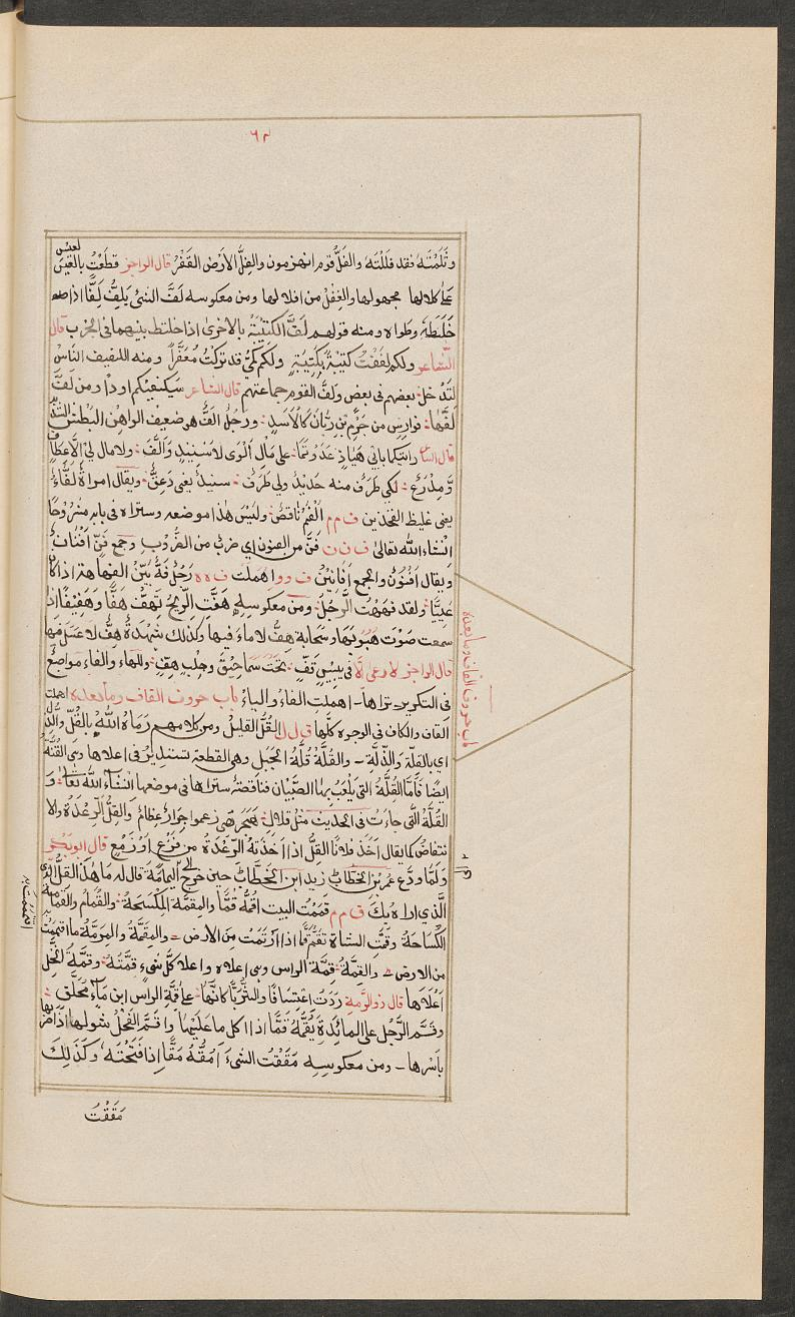 ٦٢
وثلمته فقد فللته والفَلُّ قوم انهزمون والفِلُّ الأرض القَفْرُ قال الراجز قطعتُ بالعيس
على كلالها مجهولها والغفل من افلالها ومن معكوسه لَفَّ الشئ يلفُّ لَفًّا اذا
خَلَطَهُ وطواه ومنه قولهم لَفَّ الكتيبة بالاخرى اذا خلط بينهما في الحرب قال
الشاعر ولكم لففت كتيبةً بكتيبةٍ ولكم كميٍّ قد تركتُ مُعَفَّراً ومنه اللفيف الناس
لتدخل بعضهم في بعض ولَفُّ القوم جماعتهم قال الشاعر سيكفيكم اودًا ومن لفَّ
لَفَّها فوارس من جَرْم بن ربّان كالأسدِ ورجُلٌ الفُّ هو ضعيف الواهن البطش
قال الشاعر على مال ألوى لا سنيد ولا الفَّ ولا مال لي الا عطاف
ومِدْرَع لكم طرف منه حديد ولي طرف سنيد يعني دعيّ ويقال امراة لفّاءُ
يعني غليظ الفخذين ف م م الفم ناقص وليس هذا موضعه وستراه في بابه مشروحًا
انشاء الله تعالى ف ن ن فَنٌّ من الفنون اي ضرب من الضروب وجمع فنّ افنان
ويقال افنون والجمع افانين ف و و اهملت ف ه ه رجُل فَهٌّ بيّن الفهاهة اذا كان
عييًّا ولقد فههت الرجل ومن معكوسه هفّت الريح تهفّ هفًّا وهفيفًا اذا
سمعت صوت هبوبها وسحابة هِفٌّ لا ماء فيها وكذلك شُهدة هِفٌّ لا عسل فيها
قال الراجز لا رعي الا في يبيس قفّ تحت سماحيق وجلب هِفِّ وللهاء والفاء مواضع
في التكرير تراها اهملت الفاء والياء باب حروف القاف وما بعده اهملت
القاف والكاف في الوجوه كلّها ق ل ل القُلّ القليل ومن كلامهم رماه الله بالقُلّ والذُلّ
اي بالقلّة والذلّة والقُلّة قُلّة الجبل وهي القطعة تستدير في اعلاها وهي القُنّة
ايضًا فأمّا القُلَة التي يلعب بها الصبيان فناقصة ستراها في موضعها انشاء الله تعا و
القُلّة التي جاءت في الحديث مثل قلال هَجَر هي زعموا جرار عظام والقِلّ الرِعْدة والا
نتفاض كما يقال أخذ فلانًا القِلُّ اذا اخذته الرعدة من فزع او زمع قال ابو بكر
ولمّا ودّع عمر بن الخطاب زيد ابن الخطاب حين خرج الى اليمامة قال له ما هذا القِلّ
الذي اراه بك ق م م قممت البيت اقُمُّه قمًّا والمِقمّة المِكسحة والقُمام والقُمامة
الكُساحة وقمّت الشاة تقمّ قمًّا اذا ارتمت من الارض والمِقمّة والمِرمّة ما اقتمت
من الارض والقِمّة قمّة الراس وهي اعلاه واعلا كل شيء قمّته وقمّة النخل
اعلاها قال ذو الرمة وَرَدْتُ اعتسافًا والثريّا كانّها على قمّة الراس ابن ماءٍ محلّق
وقمّ الرَجُل على المائدة يقمّه قمًّا اذا اكل ما عليها واقتمّ الفحل شولها اذا ضربها
بأسرها ومن معكوسه مققت الشيءَ امُقُّه مقًّا اذا فتحته وكذلك
مققتُ
باب حروف القاف وما بعده